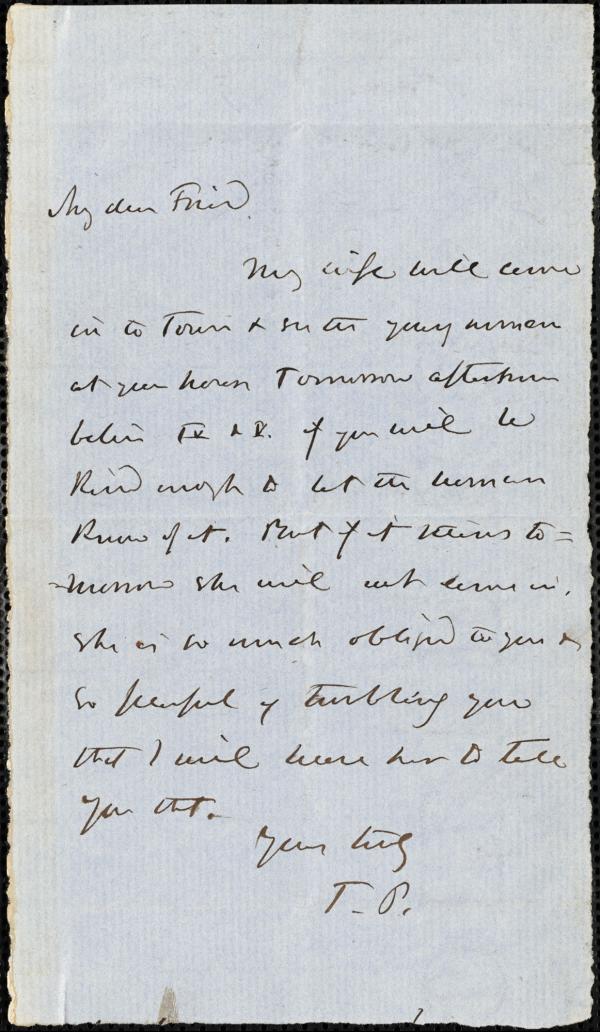 My dear Friend
My wife will come
in to Town & see the young woman
at your house Tomorrow afternoon
before & V. if you will be
Kind enough to let the woman
Know of it. But if it storms to=
=morrow she will not come in.
She is so much obliged to you &
so fearful of troubling you
that I will leave her to tell
you that.
Yours truly
T. P.